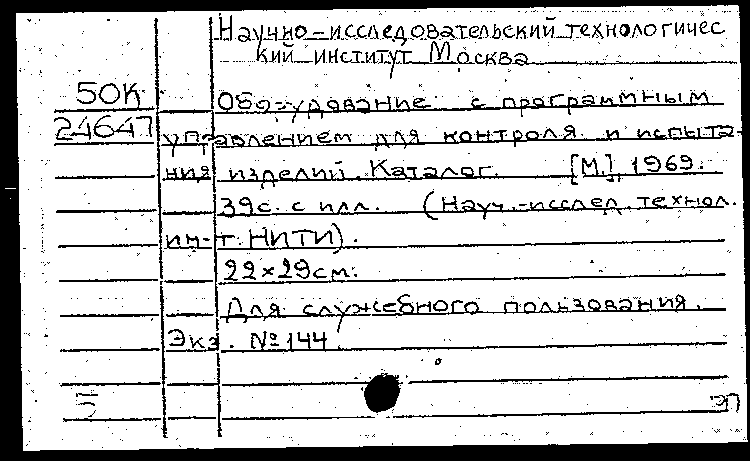 Научно-исследовательский технологичес
кий институт Москва
50К
Оборудование с программным
24647
управлением для контроля и испыта-
ния изделий. Каталог. [М.], 1969.
39с. с илл. (Науч.-исслед. технол.
ин-т. НИТИ).
22×29см.
Для служебного пользования.
Экз. №144.
5
ЭП